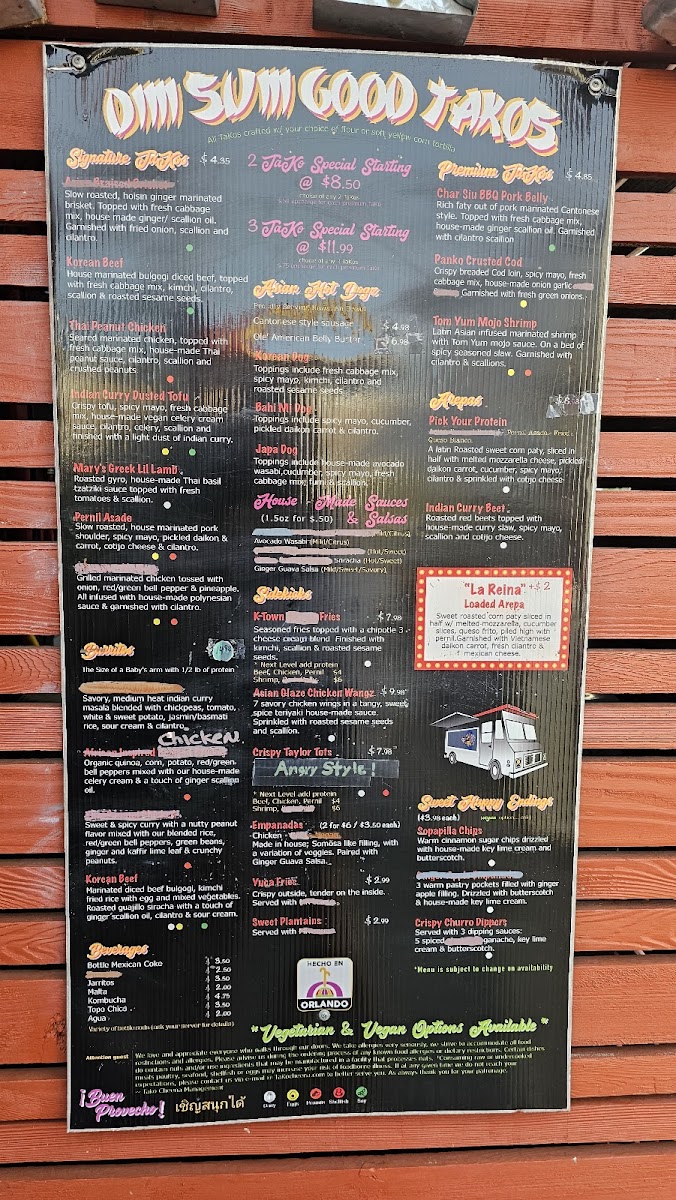 DIM SUM GOOD TAKOS
All TaKos crafted w/ your choice of flour or soft yellow corn tortilla
Signature TaKos $4.35
Slow roasted, hoisin ginger marinated
brisket. Topped with fresh cabbage
mix, house made ginger/ scallion oil.
Garnished with fried onion, scallion and
cilantro.
Korean Beef
House marinated bulgogi diced beef, topped
with fresh cabbage mix, kimchi, cilantro,
scallion & roasted sesame seeds.
Thai Peanut Chicken
Seared marinated chicken, topped with
fresh cabbage mix, house-made Thai
peanut sauce, cilantro, scallion and
crushed peanuts
Indian Curry Dusted Tofu
Crispy tofu, spicy mayo, fresh cabbage
mix, house-made vegan celery cream
sauce, cilantro, celery, scallion and
finished with a light dust of indian curry.
Mary's Greek Lil Lamb
Roasted gyro, house-made Thai basil
tzatziki sauce topped with fresh
tomatoes & scallion.
Pernil Asade
Slow roasted, house marinated pork
shoulder, spicy mayo, pickled daikon &
carrot, cotijo cheese & cilantro.
Grilled marinated chicken tossed with
onion, red/green bell pepper & pineapple.
All infused with house-made polynesian
sauce & garnished with cilantro.
Burritos
The Size of a Baby's arm with 1/2 lb of protein
Savory, medium heat indian curry
masala blended with chickpeas, tomato,
white & sweet potato, jasmin/basmati
rice, sour cream & cilantro.
Chicken
African Inspired
Organic quinoa, corn, potato, red/green
bell peppers mixed with our house-made
celery cream & a touch of ginger scallion
oil.
Sweet & spicy curry with a nutty peanut
flavor mixed with our blended rice,
red/green bell peppers, green beans,
ginger and kaffir lime leaf & crunchy
peanuts.
Korean Beef
Marinated diced beef bulgogi, kimchi
fried rice with egg and mixed vegetables.
Roasted guajillo siracha with a touch of
ginger scallion oil, cilantro & sour cream.
Beverages
Bottle Mexican Coke 3.50
2.50
Jarritos 3.50
Malta 2.00
Kombucha 4.75
Topo Chico 3.50
Agua 2.00
Variety of tastik sods (ask your server for details)
2 TaKo Special Starting
@ $8.50
choice of any 2 takos
3 TaKo Special Starting
@ $11.99
choice of any 3 takos
Asian Hot Dogz
Cantonese style sausage $4.98
Ole' American Belly Buster 6.98
Korean Dog
Toppings include fresh cabbage mix,
spicy mayo, kimchi, cilantro and
roasted sesame seeds
Bahi Mi Dog
Toppings include spicy mayo, cucumber,
pickled daikon carrot & cilantro.
Japa Dog
Toppings include house-made avocado
wasabi,cucumber, spicy mayo, fresh
cabbage mix, fumi & scallion.
House Made Sauces
(1.5oz for $.50) & Salsas
Avocado Wasabi (Mild/Citrus)
(Hot/Sweet)
Siracha (Hot/Sweet)
Ginger Guava Salsa (Mild/Sweet/Savory)
Sidekicks
K-Town Fries $7.98
Seasoned fries topped with a chipotle 3
cheese cream blend. Finished with
kimchi, scallion & roasted sesame
seeds.
* Next Level add protein
Beef, Chicken, Pernil $4
Shrimp, $6
Asian Glaze Chicken Wangz $9.98
7 savory chicken wings in a tangy, sweet,
spice teriyaki house-made sauce.
Sprinkled with roasted sesame seeds
and scallion.
Crispy Taylor Tots $7.98
Angry Style!
* Next Level add protein
Beef, Chicken, Pernil $4
Shrimp, $6
Empanadas (2 for $6 / $3.50 each)
Chicken
Made in house; Somosa like filling, with
a variation of veggies. Paired with
Ginger Guava Salsa.
Yuca Fries $2.99
Crispy outside, tender on the inside.
Served with
Sweet Plantains $2.99
Served with
HECHO EN
ORLANDO
Premium TaKos $4.85
Char Siu BBQ Pork Belly
Rich faty out of pork marinated Cantonese
style. Topped with fresh cabbage mix,
house-made ginger scallion oil. Garnished
with cilantro scallion
Panko Crusted Cod
Crispy breaded Cod loin, spicy mayo, fresh
cabbage mix, house-made onion garlic
Garnished with fresh green onions.
Tom Yum Mojo Shrimp
Latin Asian infused marinated shrimp
with Tom Yum mojo sauce. On a bed of
spicy seasoned slaw. Garnished with
cilantro & scallions.
Arepas
Pick Your Protein
Queso blanco.
A latin Roasted sweet corn paty, sliced in
half with melted mozzarella cheese, pickled
daikon carrot, cucumber, spicy mayo,
cilantro & sprinkled with cotijo cheese
Indian Curry Beef
Roasted red beets topped with
house-made curry slaw, spicy mayo,
scallion and cotijo cheese.
"La Reina" +$2
Loaded Arepa
Sweet roasted corn paty sliced in
half w/ melted-mozzarella, cucumber
slices, queso frito, piled high with
pernil.Garnished with Vietnamese
daikon carrot, fresh cilantro &
mexican cheese.
Sweet Happy Endings
($3.98 each)
Sopapilla Chips
Warm cinnamon sugar chips drizzled
with house-made key lime cream and
butterscotch.
3 warm pastry pockets filled with ginger
apple filling. Drizzled with butterscotch
& house-made key lime cream.
Crispy Churro Dippers
Served with 3 dipping sauces:
5 spiced ganache, key lime
cream & butterscotch.
*Menu is subject to change on availability
"Vegetarian & Vegan Options Available"
Attention guest We love and appreciate everyone who walks through our doors. We take allergies very seriously, we strive to accommodate all food
restrictions and allergies. Please advise us during the ordering process of any known food allergies or dietary restrictions. Certain dishes
do contain nuts and/or use ingredients that may be manufactured in a facility that processes nuts. *Consuming raw or undercooked
meats poultry, seafood, shellfish or eggs may increase your risk of foodborne illness. If at any given time we do not reach your
expectations, please contact us via e-mail to better serve you. As always thank you for your patronage.
~ Tako Cheena Management
¡Buen
Provecho! เชิญสนุกได้
Dairy Eggs Peanuts Shellfish Soy